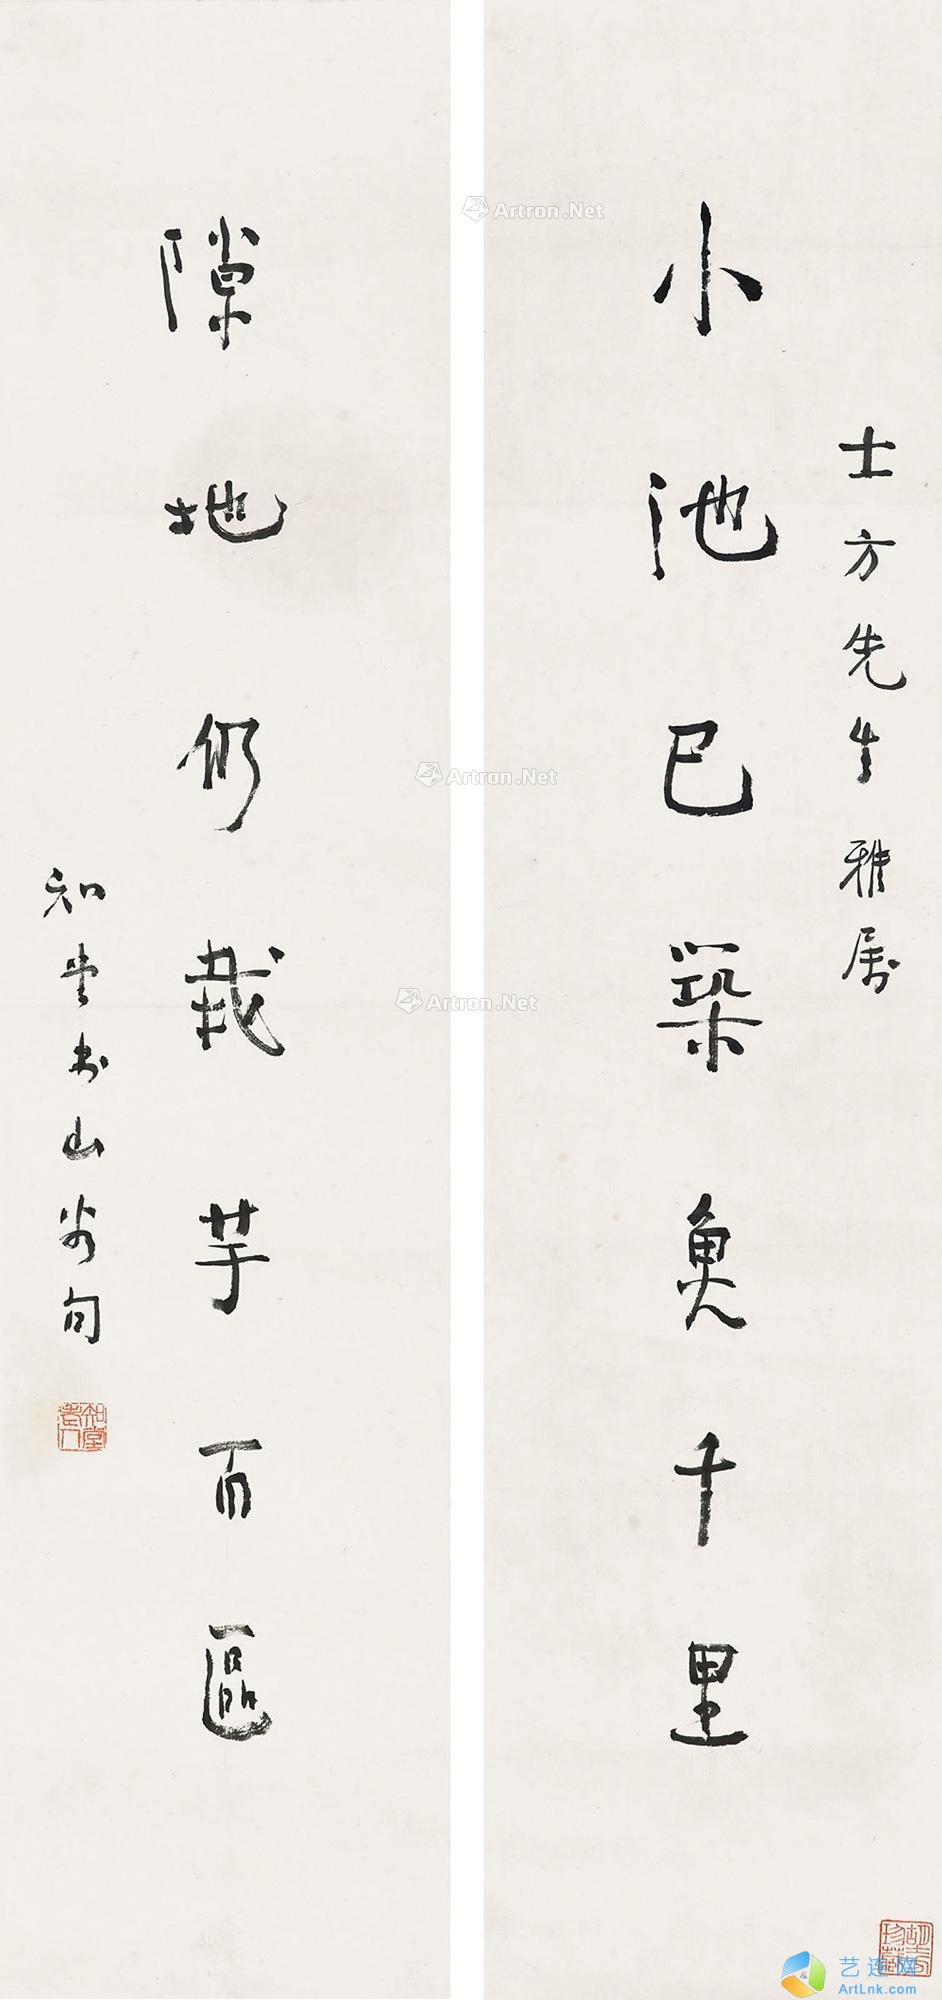 士方先生雅属
小池已築魚千里
隙地仍栽芋百區
知堂书山谷句
知堂老人
Artron.Net
Artron.Net
Artron.Net
艺连网
ArtLnk.com